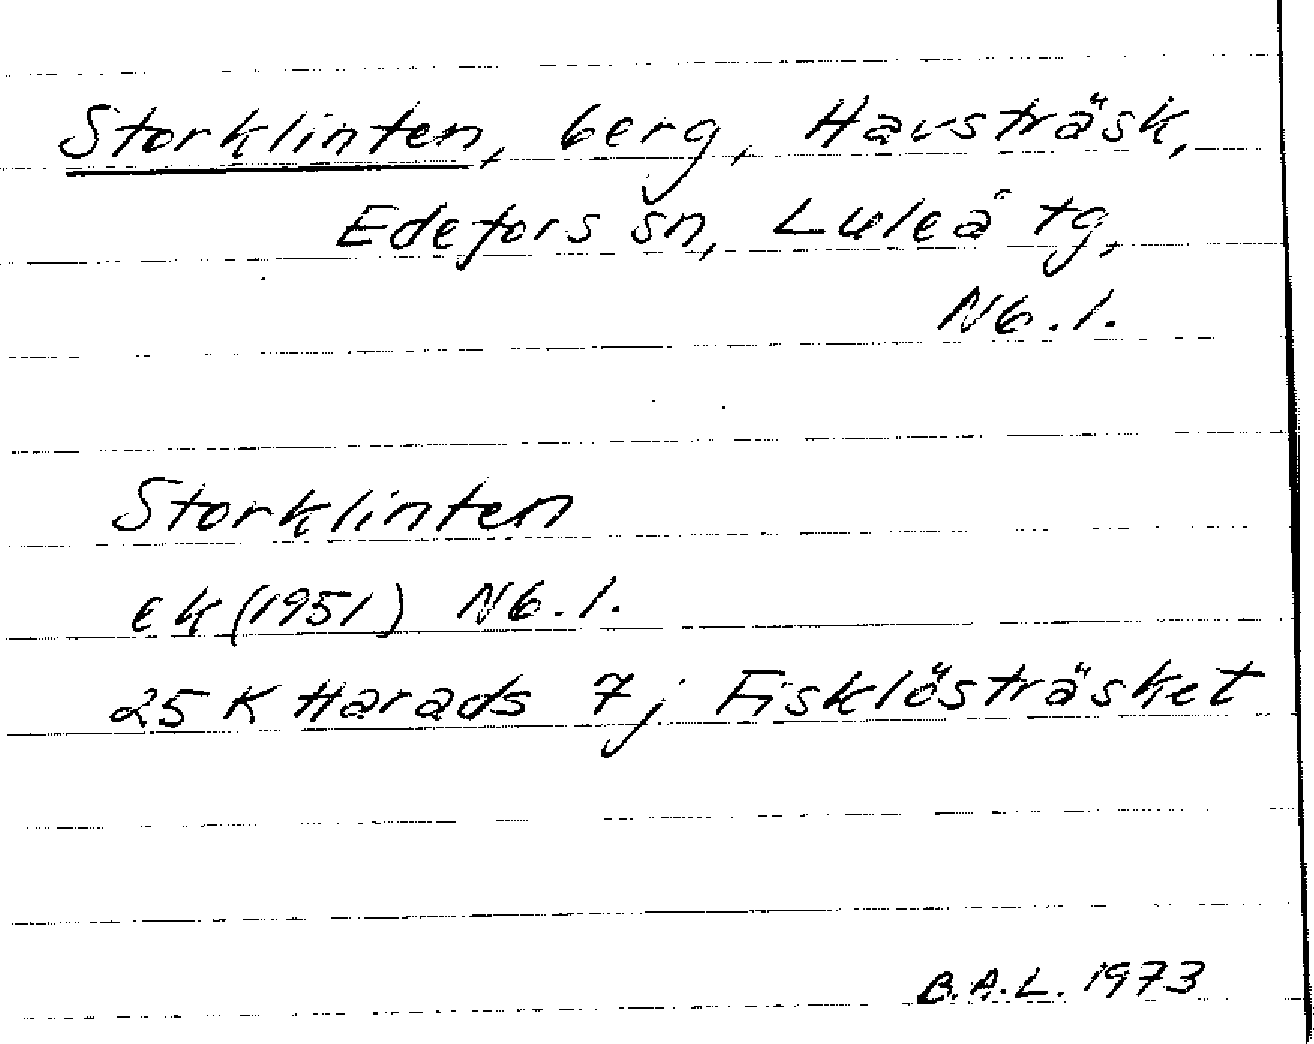 Storklinten, berg, Havsträsk,
Edefors sn, Luleå tg,
Nb. l.
Storklinten
ek (1951) Nb. l.
25 K Harads 7j Fisklösträsket
B.A.L. 1973